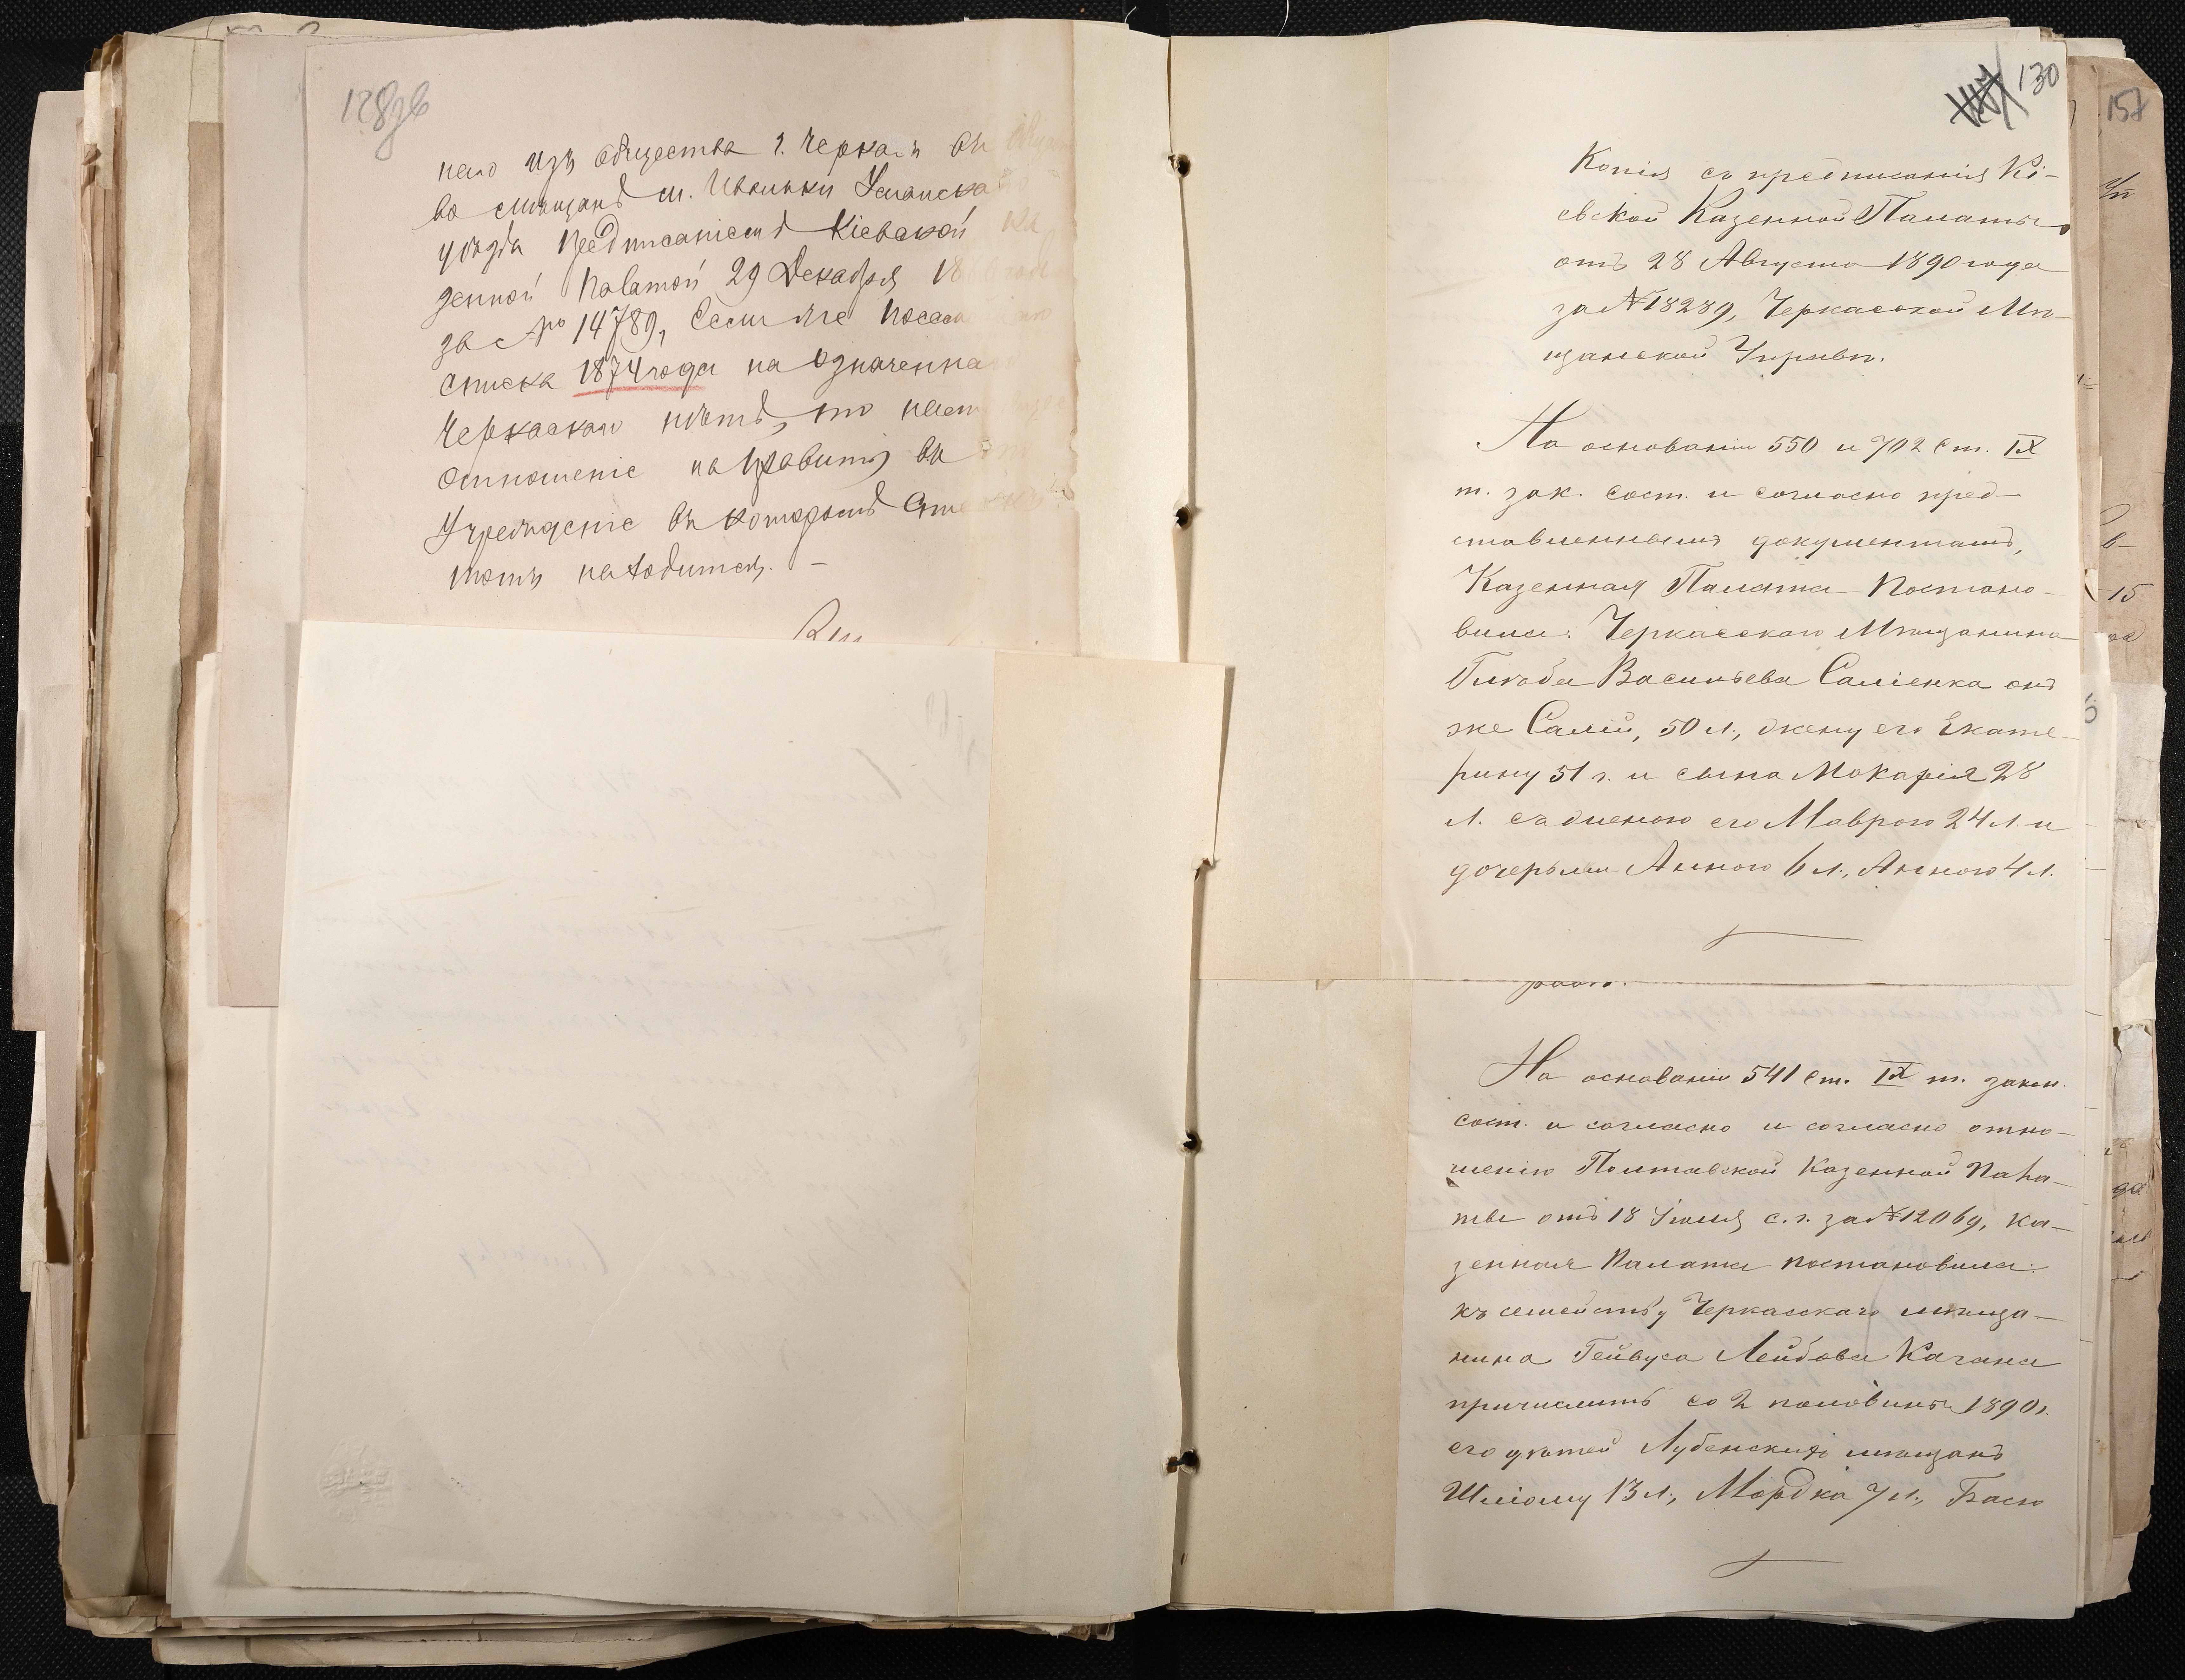 128зв
него изъ общества г. Черкасъ въ
во мѣщанъ м. Ивоньки Уманска
уѣзда предписаніемъ Кіевской
зенной Палатой 29 Декабря 18
за № 14789, Если же посем
списка 1874 года на означенна
Черкаскаго нѣтъ, то наст
отношеніе направить въ
Учрежденіе въ которомъ
тотъ находится. –
130
Копія съ предписанія Кі-
евской Казенной Палаты
отъ 28 Августа 1890 года
за № 18289, Черкасской Мѣ-
щанской Управѣ.
На основаніи 550 и 702 ст. IX
т. зак. сост. и согласно пред-
ставленнымъ документамъ,
Казенная Палата постано-
вила: Черкасскаго Мѣщанина
Глѣба Васильева Саліенка онъ
же Салій, 50 л., жену его Екате-
рину 51 г. и сына Макарія 28
л. съ женою его Маврою 24 л. и
дочерьми Анною 6 л., Анною 4 л.
На основаніи 541 ст. IX т. закон.
сост. и согласно и согласно отно-
шенію Полтавской Казенной Пала-
ты отъ 18 Іюля с. г. за № 12069, Ка-
зенная Палата постановила:
къ семейству Черкасскаго мѣща-
нина Гейвуса Лейбова Кагана
причислить со 2 половины 1890 г.
его дѣтей Лубенскихъ мѣщанъ
Шліому 13 л., Мордка 7 л., Басю
157
15